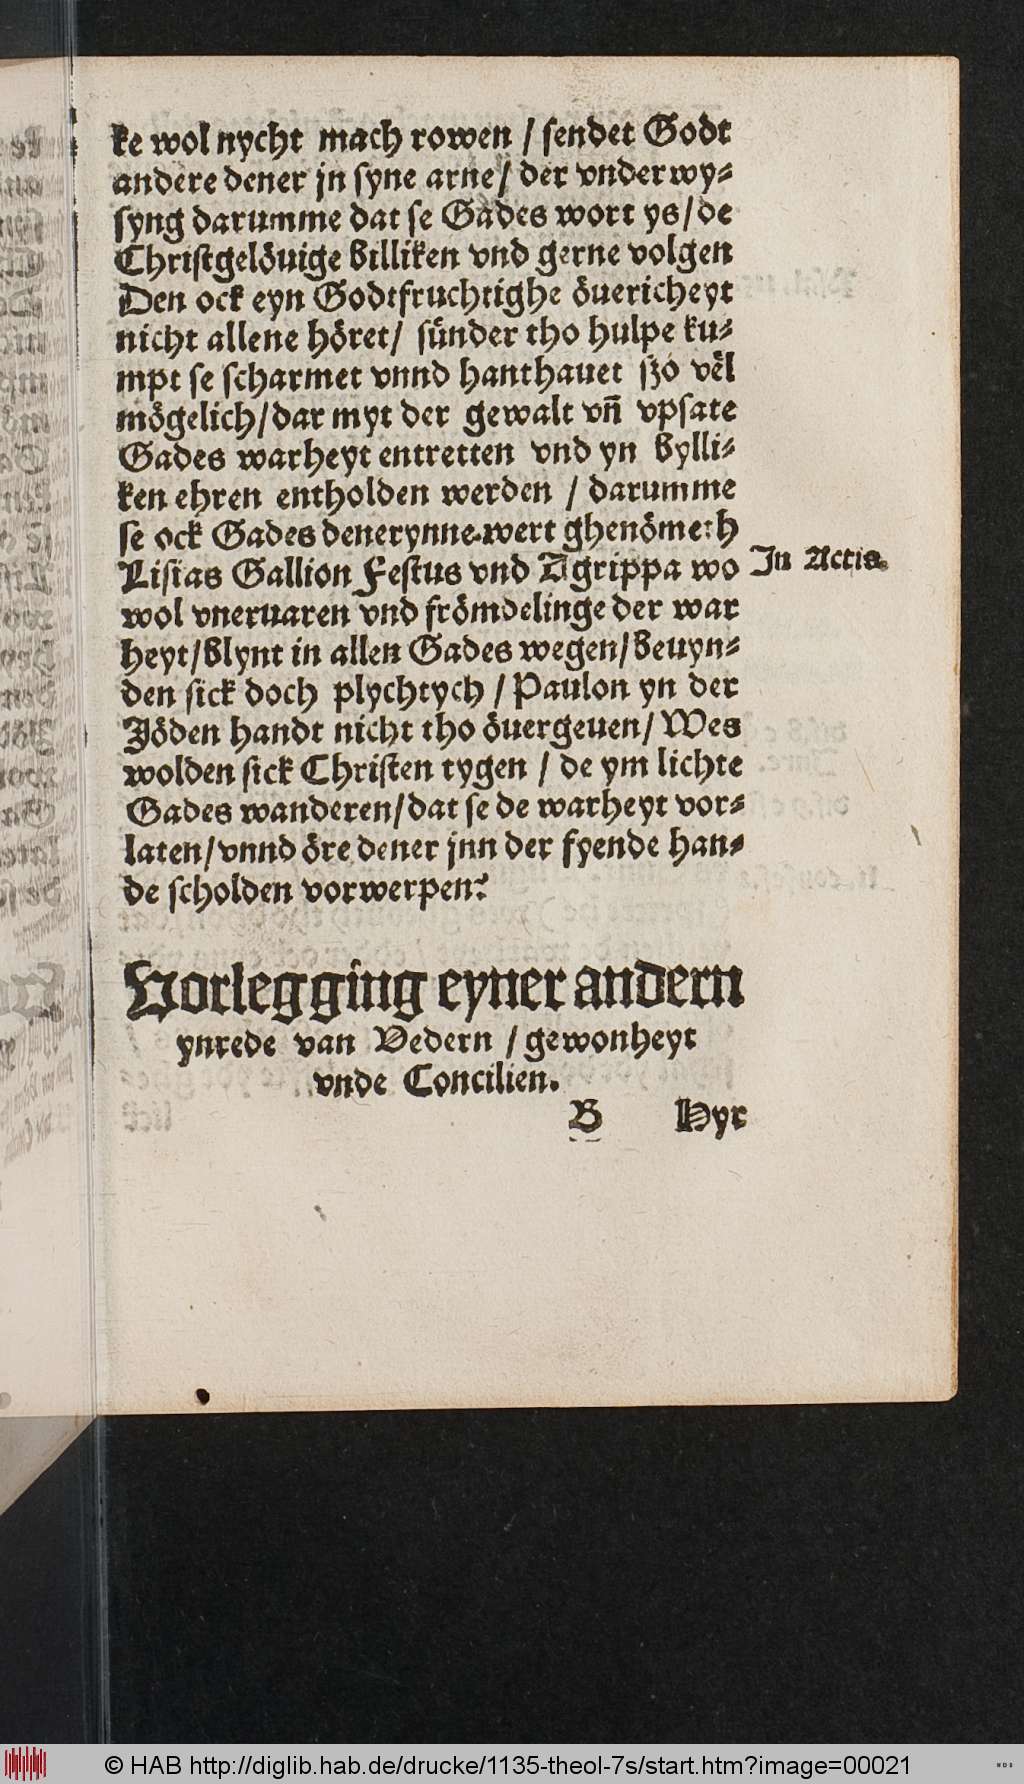 ke wol nycht mach rowen / sendet Godt
andere dener jn syne arne / der vnderwy⸗
syng darumme dat se Gades wort ys / de
Christgelöuige billiken vnd gerne volgen
Den ock eyn Godtfruchtighe öuericheyt
nicht allene höret / sünder tho hulpe ku⸗
mpt se scharmet vnnd hanthauet szo vël
mögelich / dar myt der gewalt vn̄ vpsate
Gades warheyt entretten vnd yn bylli⸗
ken ehren entholden werden / darumme
se ock Gades denerynne wert ghenömeth
Lisias Gallion Festus vnd Agrippa wo
In Actis.
wol vneruaren vnd frömdelinge der war
heyt / blynt in allen Gades wegen / beuyn⸗
den sick doch plychtych / Paulon yn der
Jöden handt nicht tho öuergeuen / Wes
wolden sick Christen tygen / de ym lichte
Gades wanderen / dat se de warheyt vor⸗
laten / vnnd öre dener jnn der fyende han⸗
de scholden vorwerpen?
Vorlegging eyner andern
ynrede van Vedern / gewonheyt
vnde Concilien.
B Hyr
© HAB http://diglib.hab.de/drucke/1135-theol-7s/start.htm?image=00021